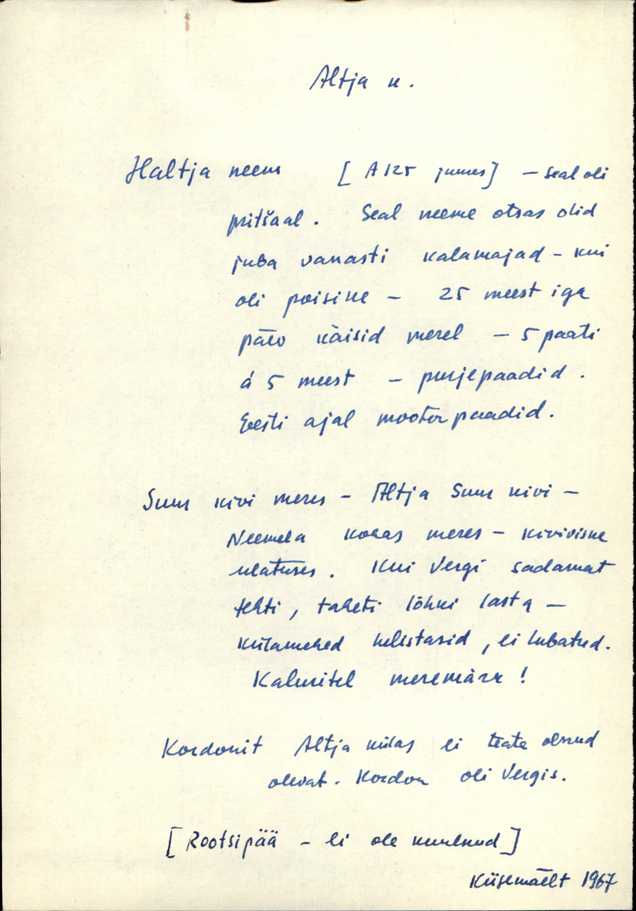 Altja k.
Haltja neem [A125 juures] – seal oli
pritšaal. Seal neeme otsas olid
juba vanasti kalamajad – kui
oli poisike – 25 meest iga
päev käisid merel – 5 paati
á 5 meest – purjepaadid.
Eesti ajal mootorpaadid.
Suur kivi meres – Altja Suur kivi –
Neemela kohas meres – kiviviske
ulatuses. Kui Vergi sadamat
tehti, taheti lõhki lasta –
külamehed helistasid, ei lubatud.
Kaluritel meremärk!
Kordonit Altja külas ei teata olnud
olevat. Kordon oli Vergis.
[Rootsipää – ei ole kuulnud]
Küsemäelt 1967